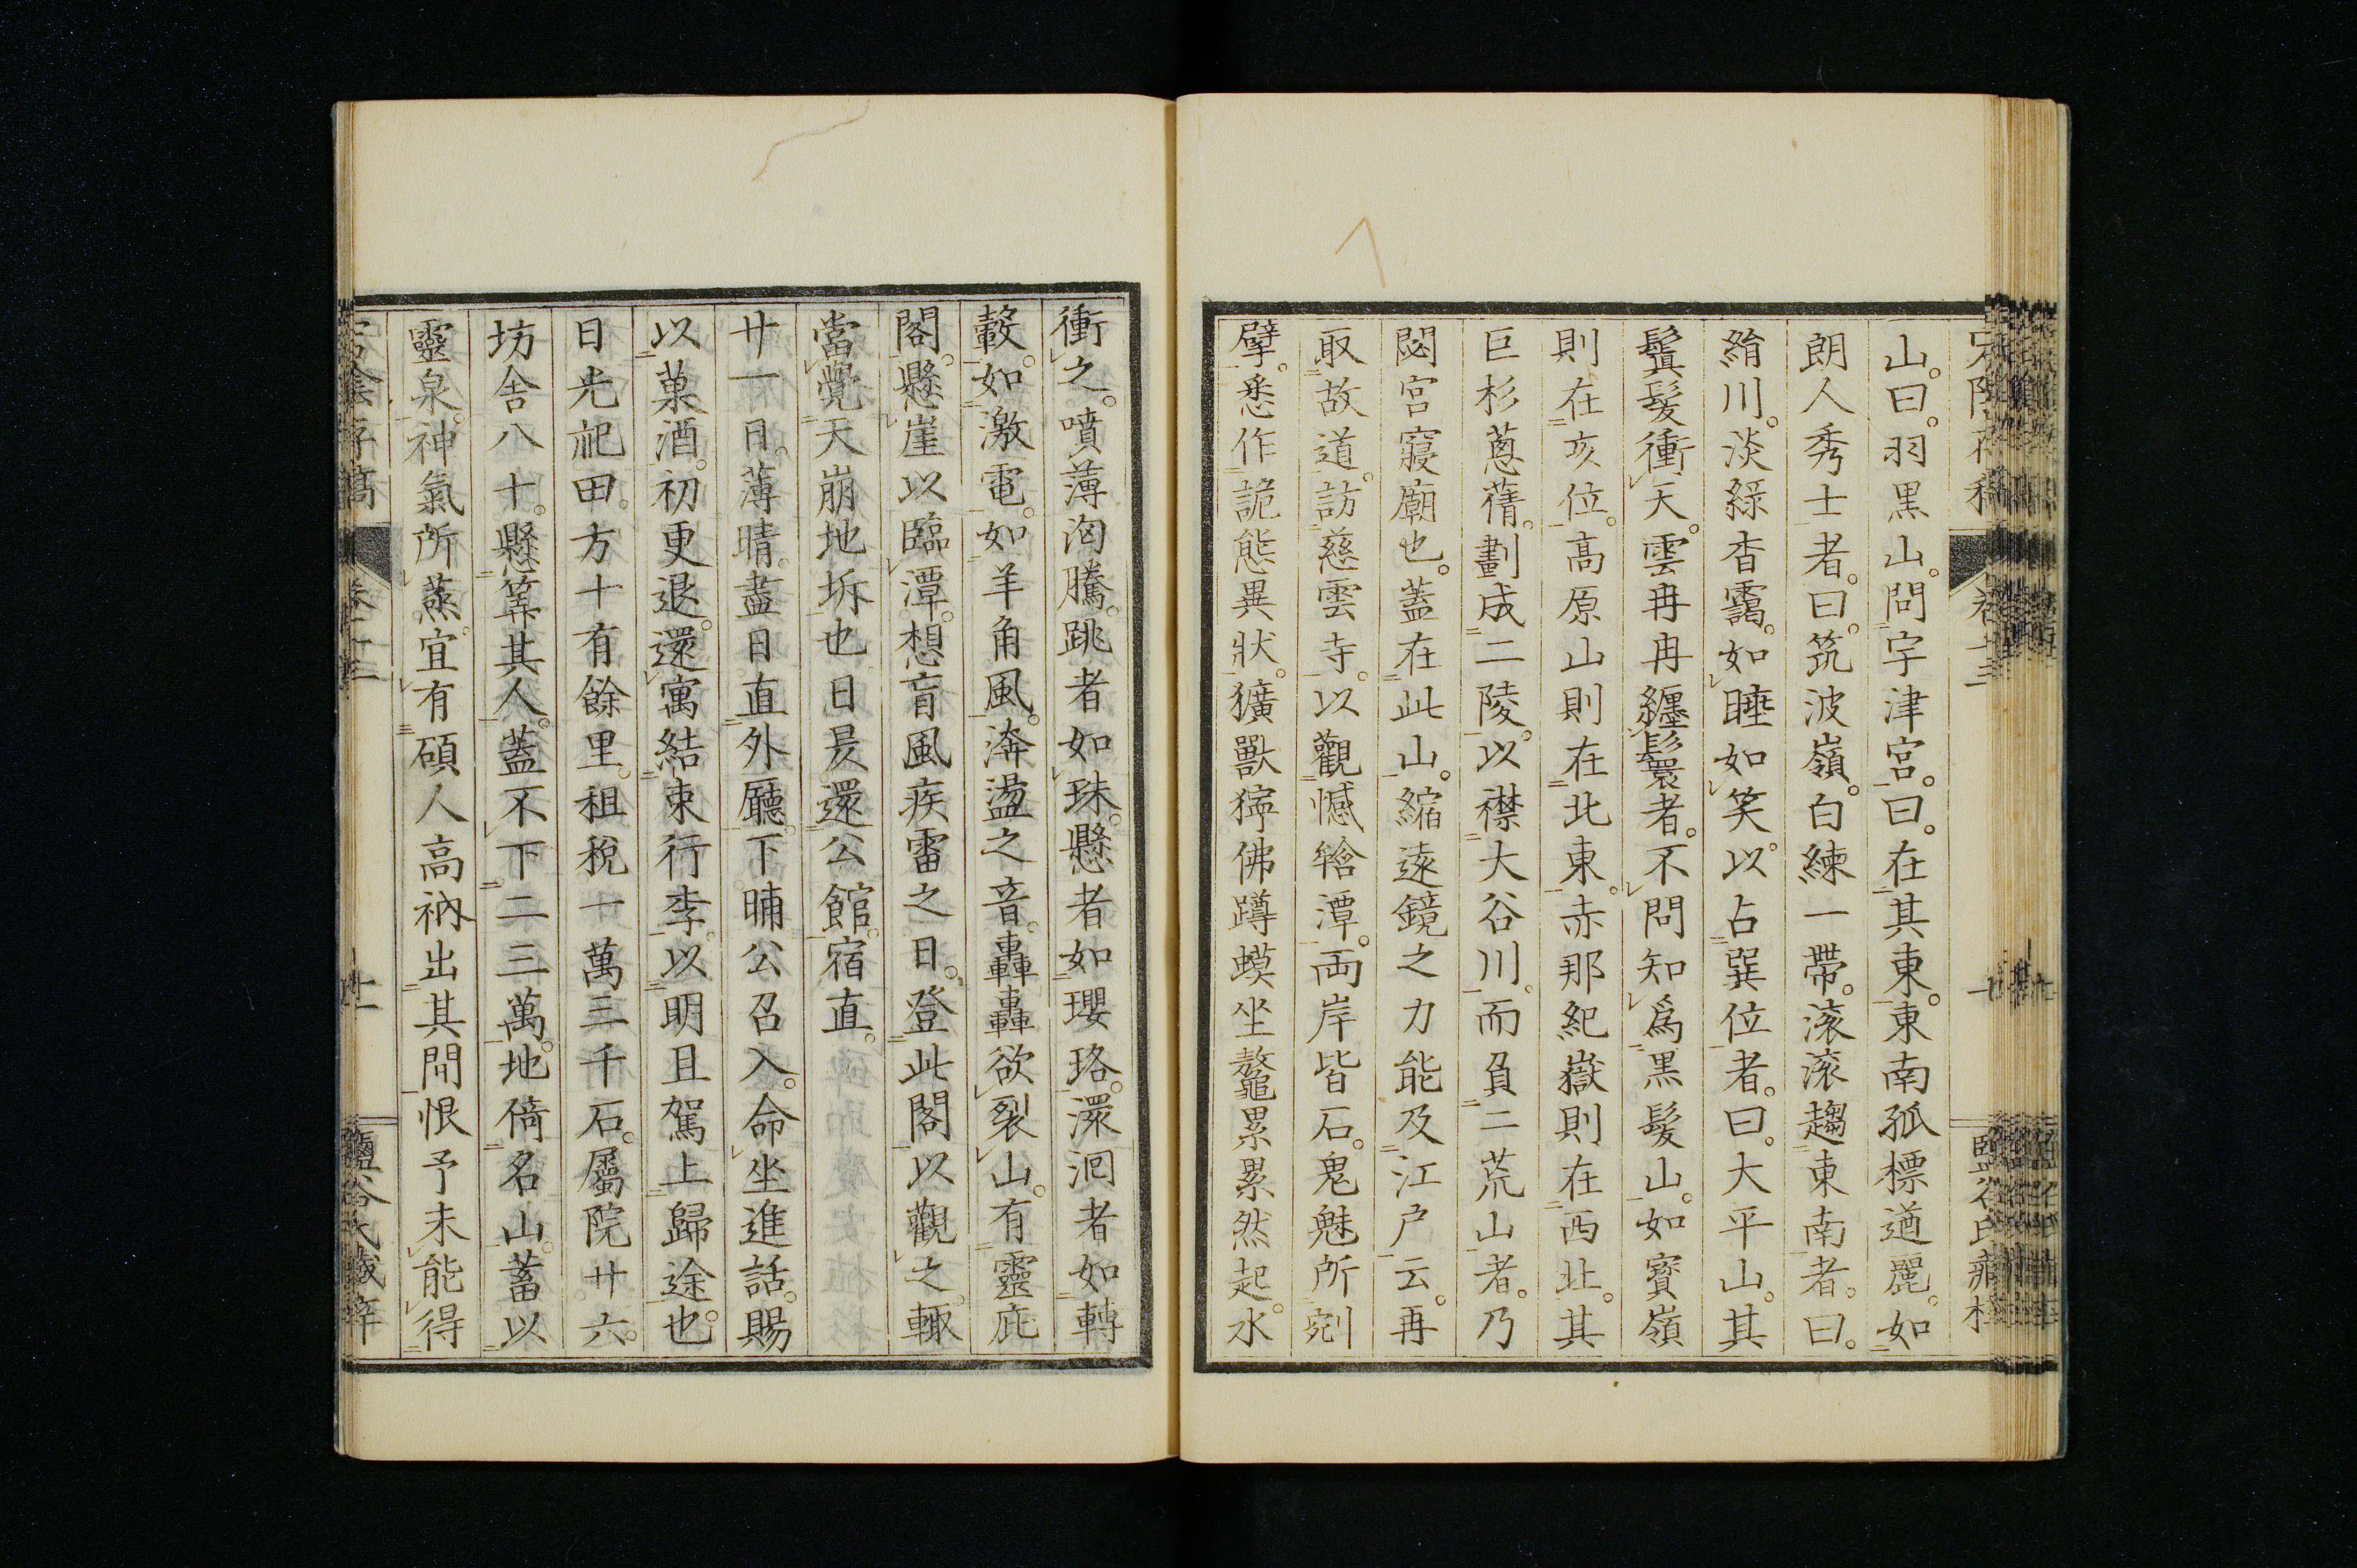 山。曰。羽黒山。問宇津宮。曰。在其東。東南孤標遒麗。如
朗人秀士者。曰。筑波嶺。白練一帶。滚滚趨東南者。曰。
絹川。淡綠杳靄。如睡如笑。以占巽位者。曰。大平山。其
鬒髮衝天。雲冉冉纏鬟者。不問知爲黒髮山。如寳嶺
則在亥位。高原山則在北東。赤那紀嶽則在西北。其
巨杉蔥蒨。劃成二陵。以襟大谷川。而負二荒山者。乃
閟宮寢廟也。蓋在此山。縮遠鏡之力能及江戸云。再
取故道。訪慈雲寺。以觀憾𤚥潭。両岸皆石。鬼魅所剜
擘。悉作詭態異狀。獷獸獰佛蹲蟆坐鼇累累然起。水
衝之。噴薄洶騰。跳者如珠。懸者如瓔珞。漩洄者如轉
轂。如激電。如羊角風。渀盪之音。轟轟欲裂山。有靈庇
閣。懸崖以臨潭。想盲風疾雷之日。登此閣以觀之。輙
當覺天崩地坼也。日昃還公館。宿直。
廿一日。薄晴。盡日直外廳。下晡公召入。命坐進話。賜
以菓酒。初更退。還寓結束行李。以明且駕上歸途也。
日光祀田。方十有餘里。租税一萬三千石。屬院廿六。
坊舎八十。懸筭其人。蓋不下二三萬。地倚名山。蓄以
靈泉。神氣所蒸。宜有碩人高衲出其間。恨予未能得
宕陰存稿 卷十三